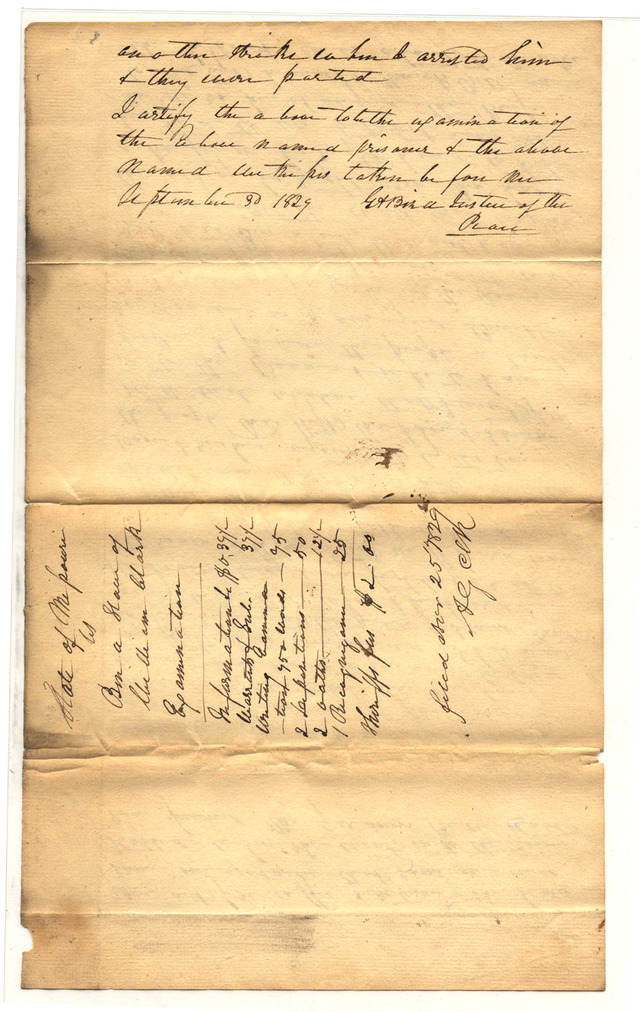 another stroke when I arrested him
& they were parted
I certify the above to be the examination of
the above named prisoner & the above
named witnesses taken before me
September 30 1829 G A Bird Justice of the
Peace
State of Missouri
vs
Ben a Slave of
William Clark
Examination
Information $0.37½
Warrant & Sub. 37½
Writing Examina
tion 750 words 75
2 depositions 50
2 oaths 12½
1 Recognizance 25
Sheriffs fees $2.00
filed Nov 25 1829